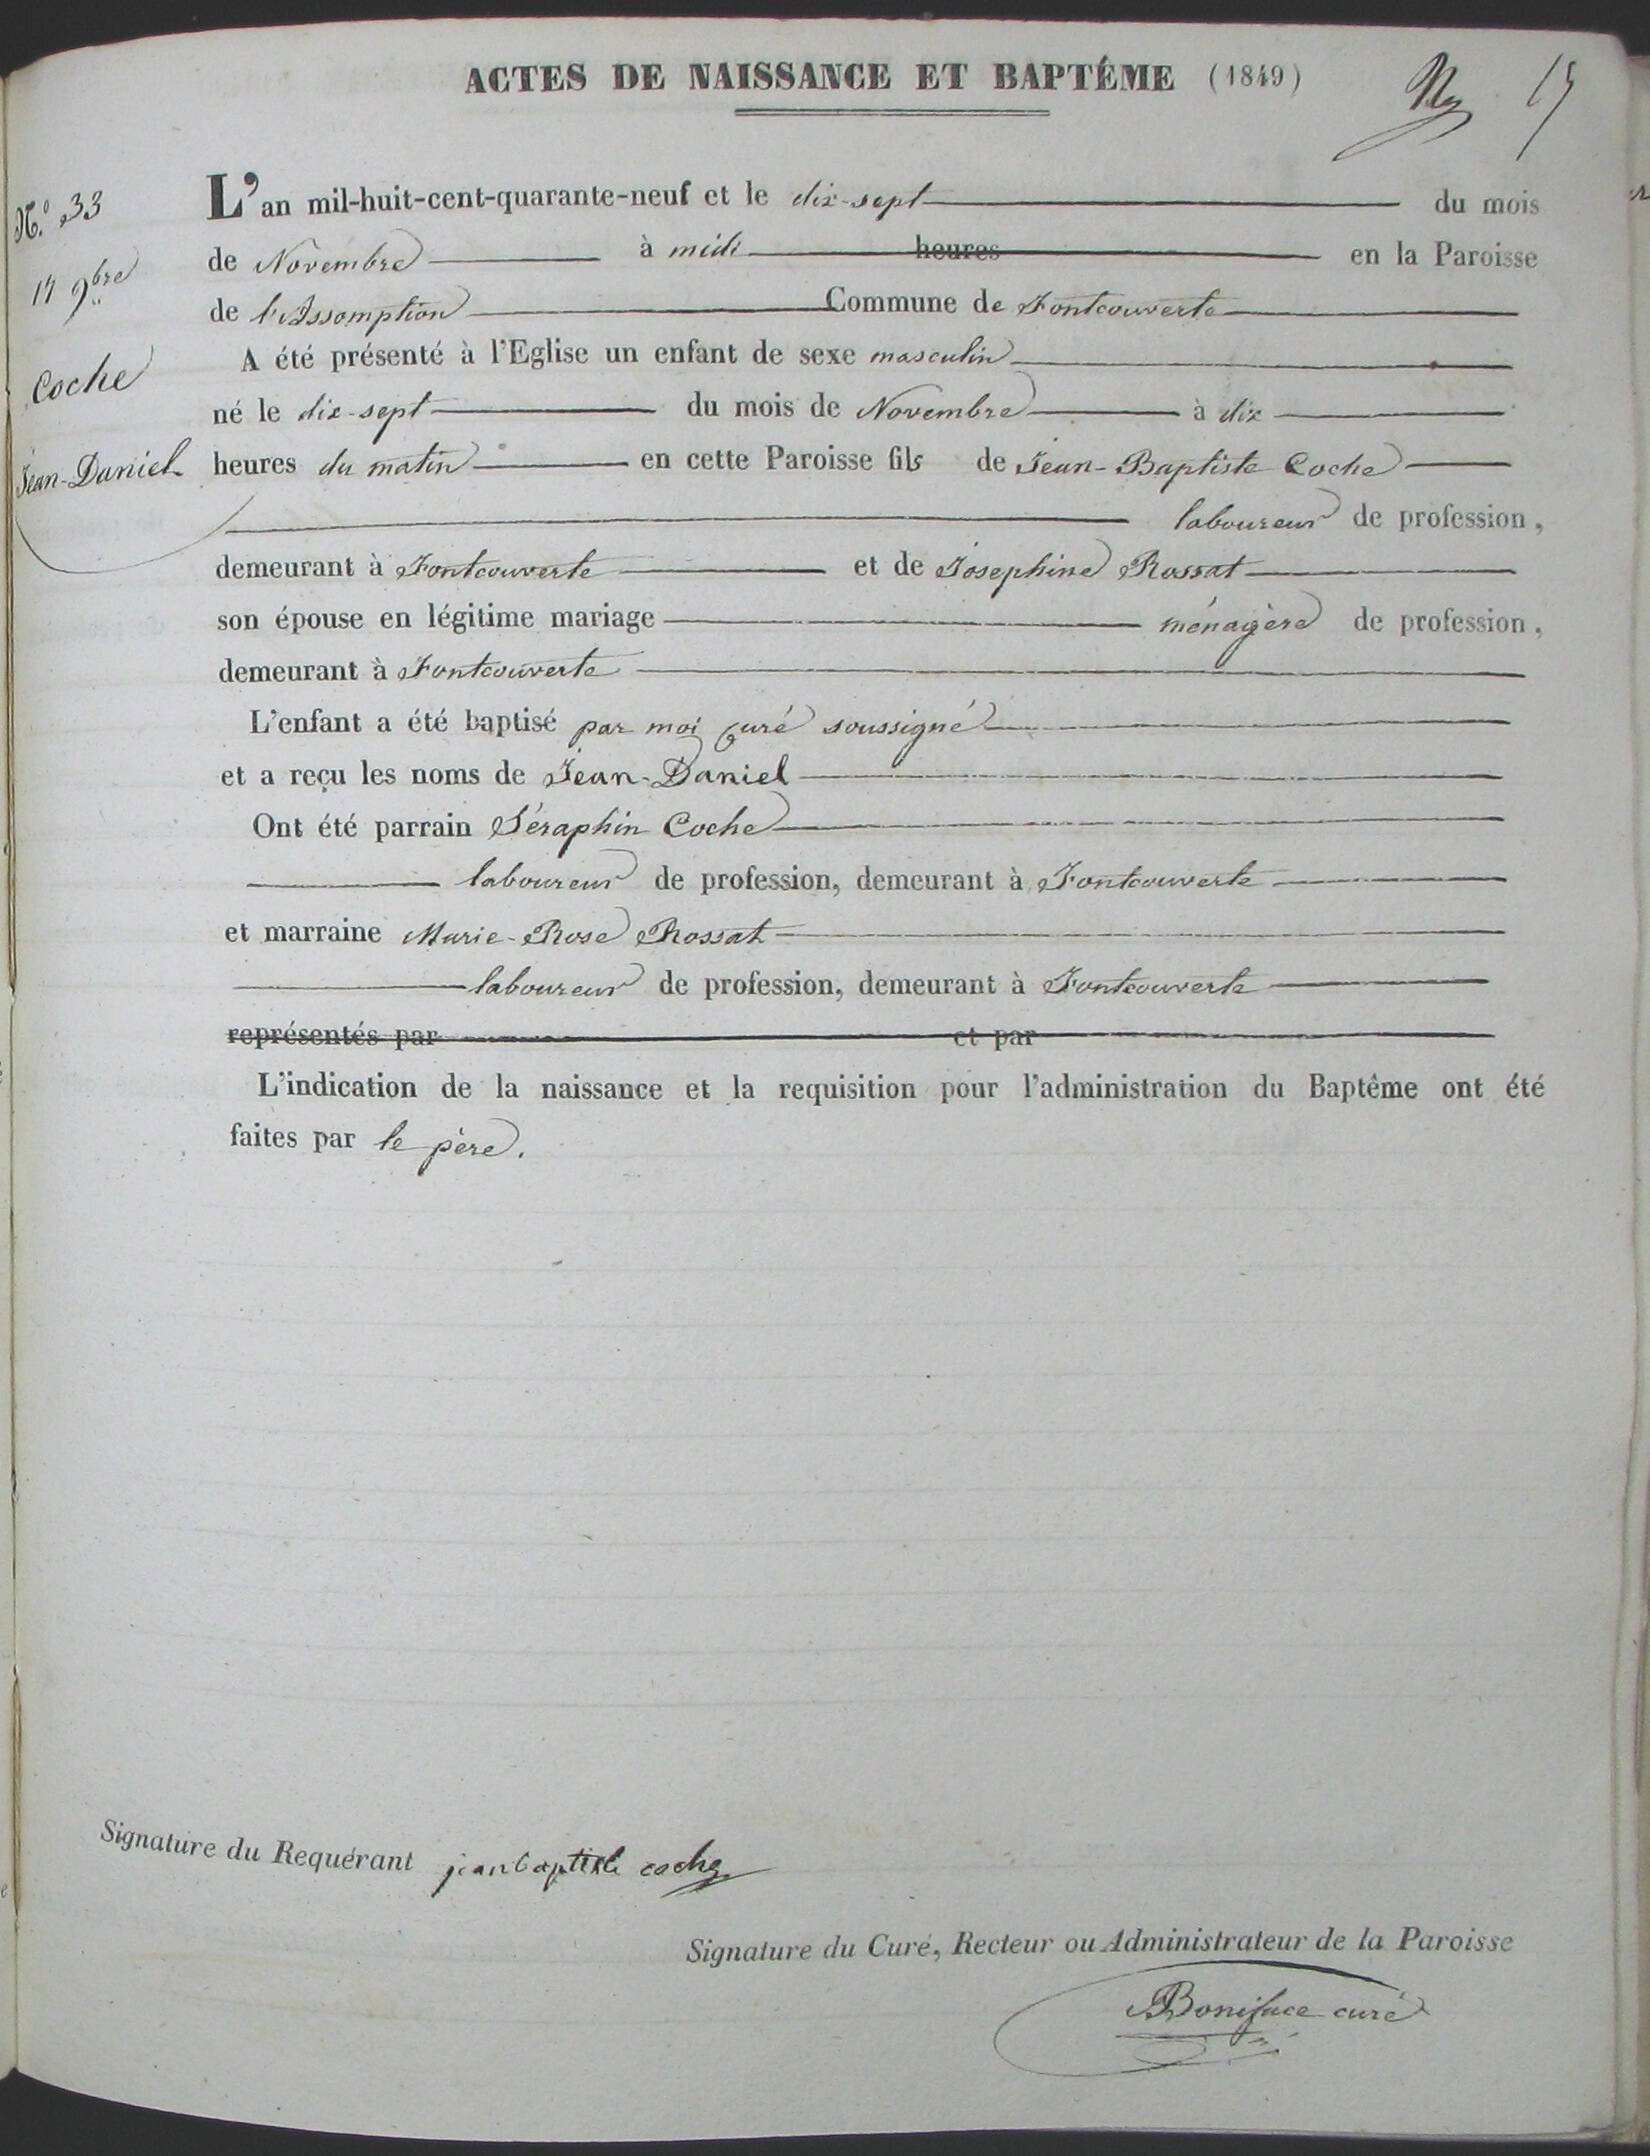 ACTES DE NAISSANCE ET BAPTÊME (1849)
N.º 33
17 9bre
Coche
Jean-Daniel
L'an mil-huit-cent-quarante-neuf et le dix-sept du mois
de Novembre à midi heures en la Paroisse
de l'Assomption Commune de Fontcouverte
A été présenté à l'Eglise un enfant de sexe masculin
né le dix-sept du mois de Novembre à dix
heures du matin en cette Paroisse fils de Jean-Baptiste Coche
laboureur de profession,
demeurant à Fontcouverte et de Josephine Rossat
son épouse en légitime mariage ménagère de profession,
demeurant à Fontcouverte
L'enfant a été baptisé par moi curé soussigné
et a reçu les noms de Jean-Daniel
Ont été parrain Séraphin Coche
laboureur de profession, demeurant à Fontcouverte
et marraine Marie-Rose Rossat
laboureur de profession, demeurant à Fontcouverte
représentés par et par
L'indication de la naissance et la requisition pour l'administration du Baptême ont été
faites par le père.
Signature du Requérant jean baptiste coche
Signature du Curé, Recteur ou Administrateur de la Paroisse
Boniface curé